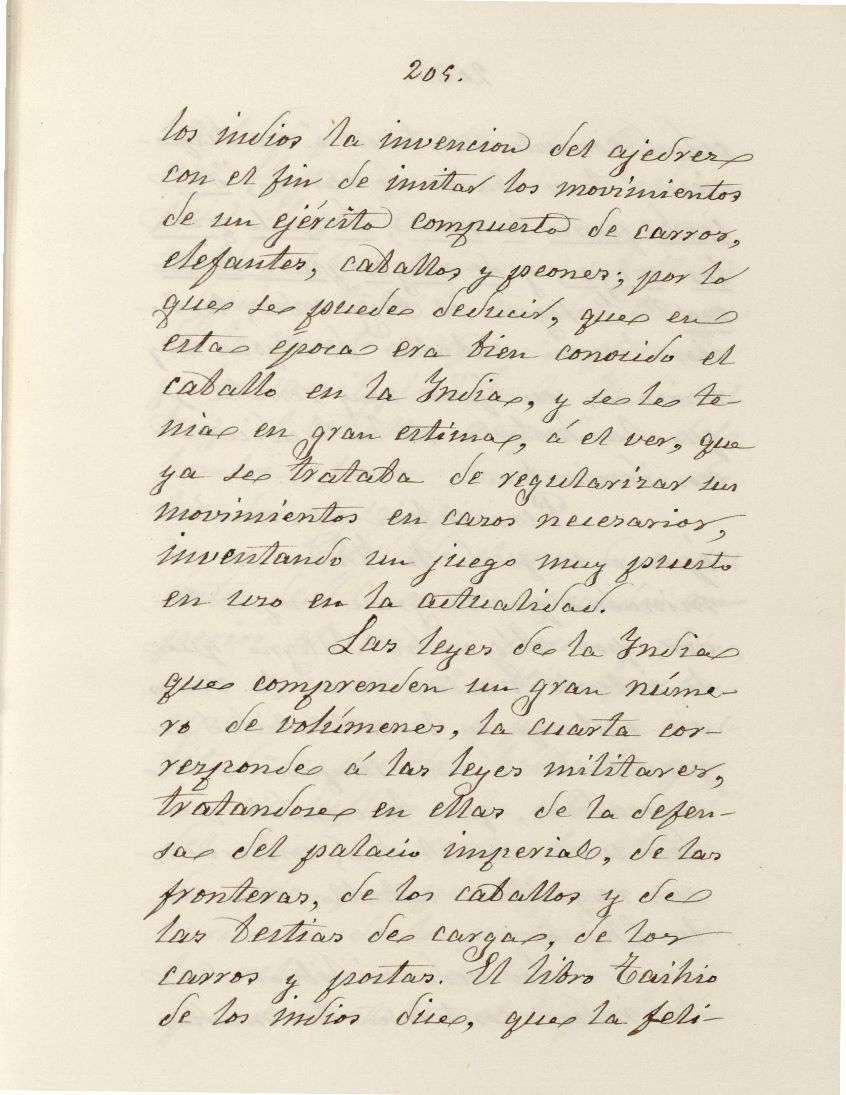 205.
los indios la invencion del ajedrez
con el fin de imitar los movimientos
de un ejército compuesto de carros,
elefantes, caballos y peones; por lo
que se puede deducir, que en
esta época era bien conocido el
caballo en la India, y se le te-
nia en gran estima, á el ver, que
ya se trataba de regularizar sus
movimientos en casos necesarios,
inventando un juego muy puesto
en uso en la actualidad.
Las leyes de la India
que comprenden un gran núme-
ro de volúmenes, la cuarta cor-
responde á las leyes militares,
tratandose en ellas de la defen-
sa del palacio imperial, de las
fronteras, de los caballos y de
las bestias de carga, de los
carros y postas. El libro Taihio
de los indios dice, que la feli-